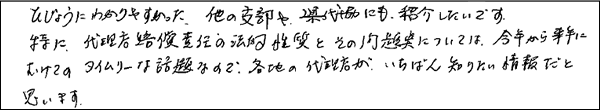 ひじょうにわかりやすかった。他の支部や、県代協にも、紹介したいです。
特に、代理店賠償責任の法的性質とその問題点については、今年から来年に
むけてのタイムリーな話題なので、各地の代理店が、いちばん知りたい情報だと
思います。